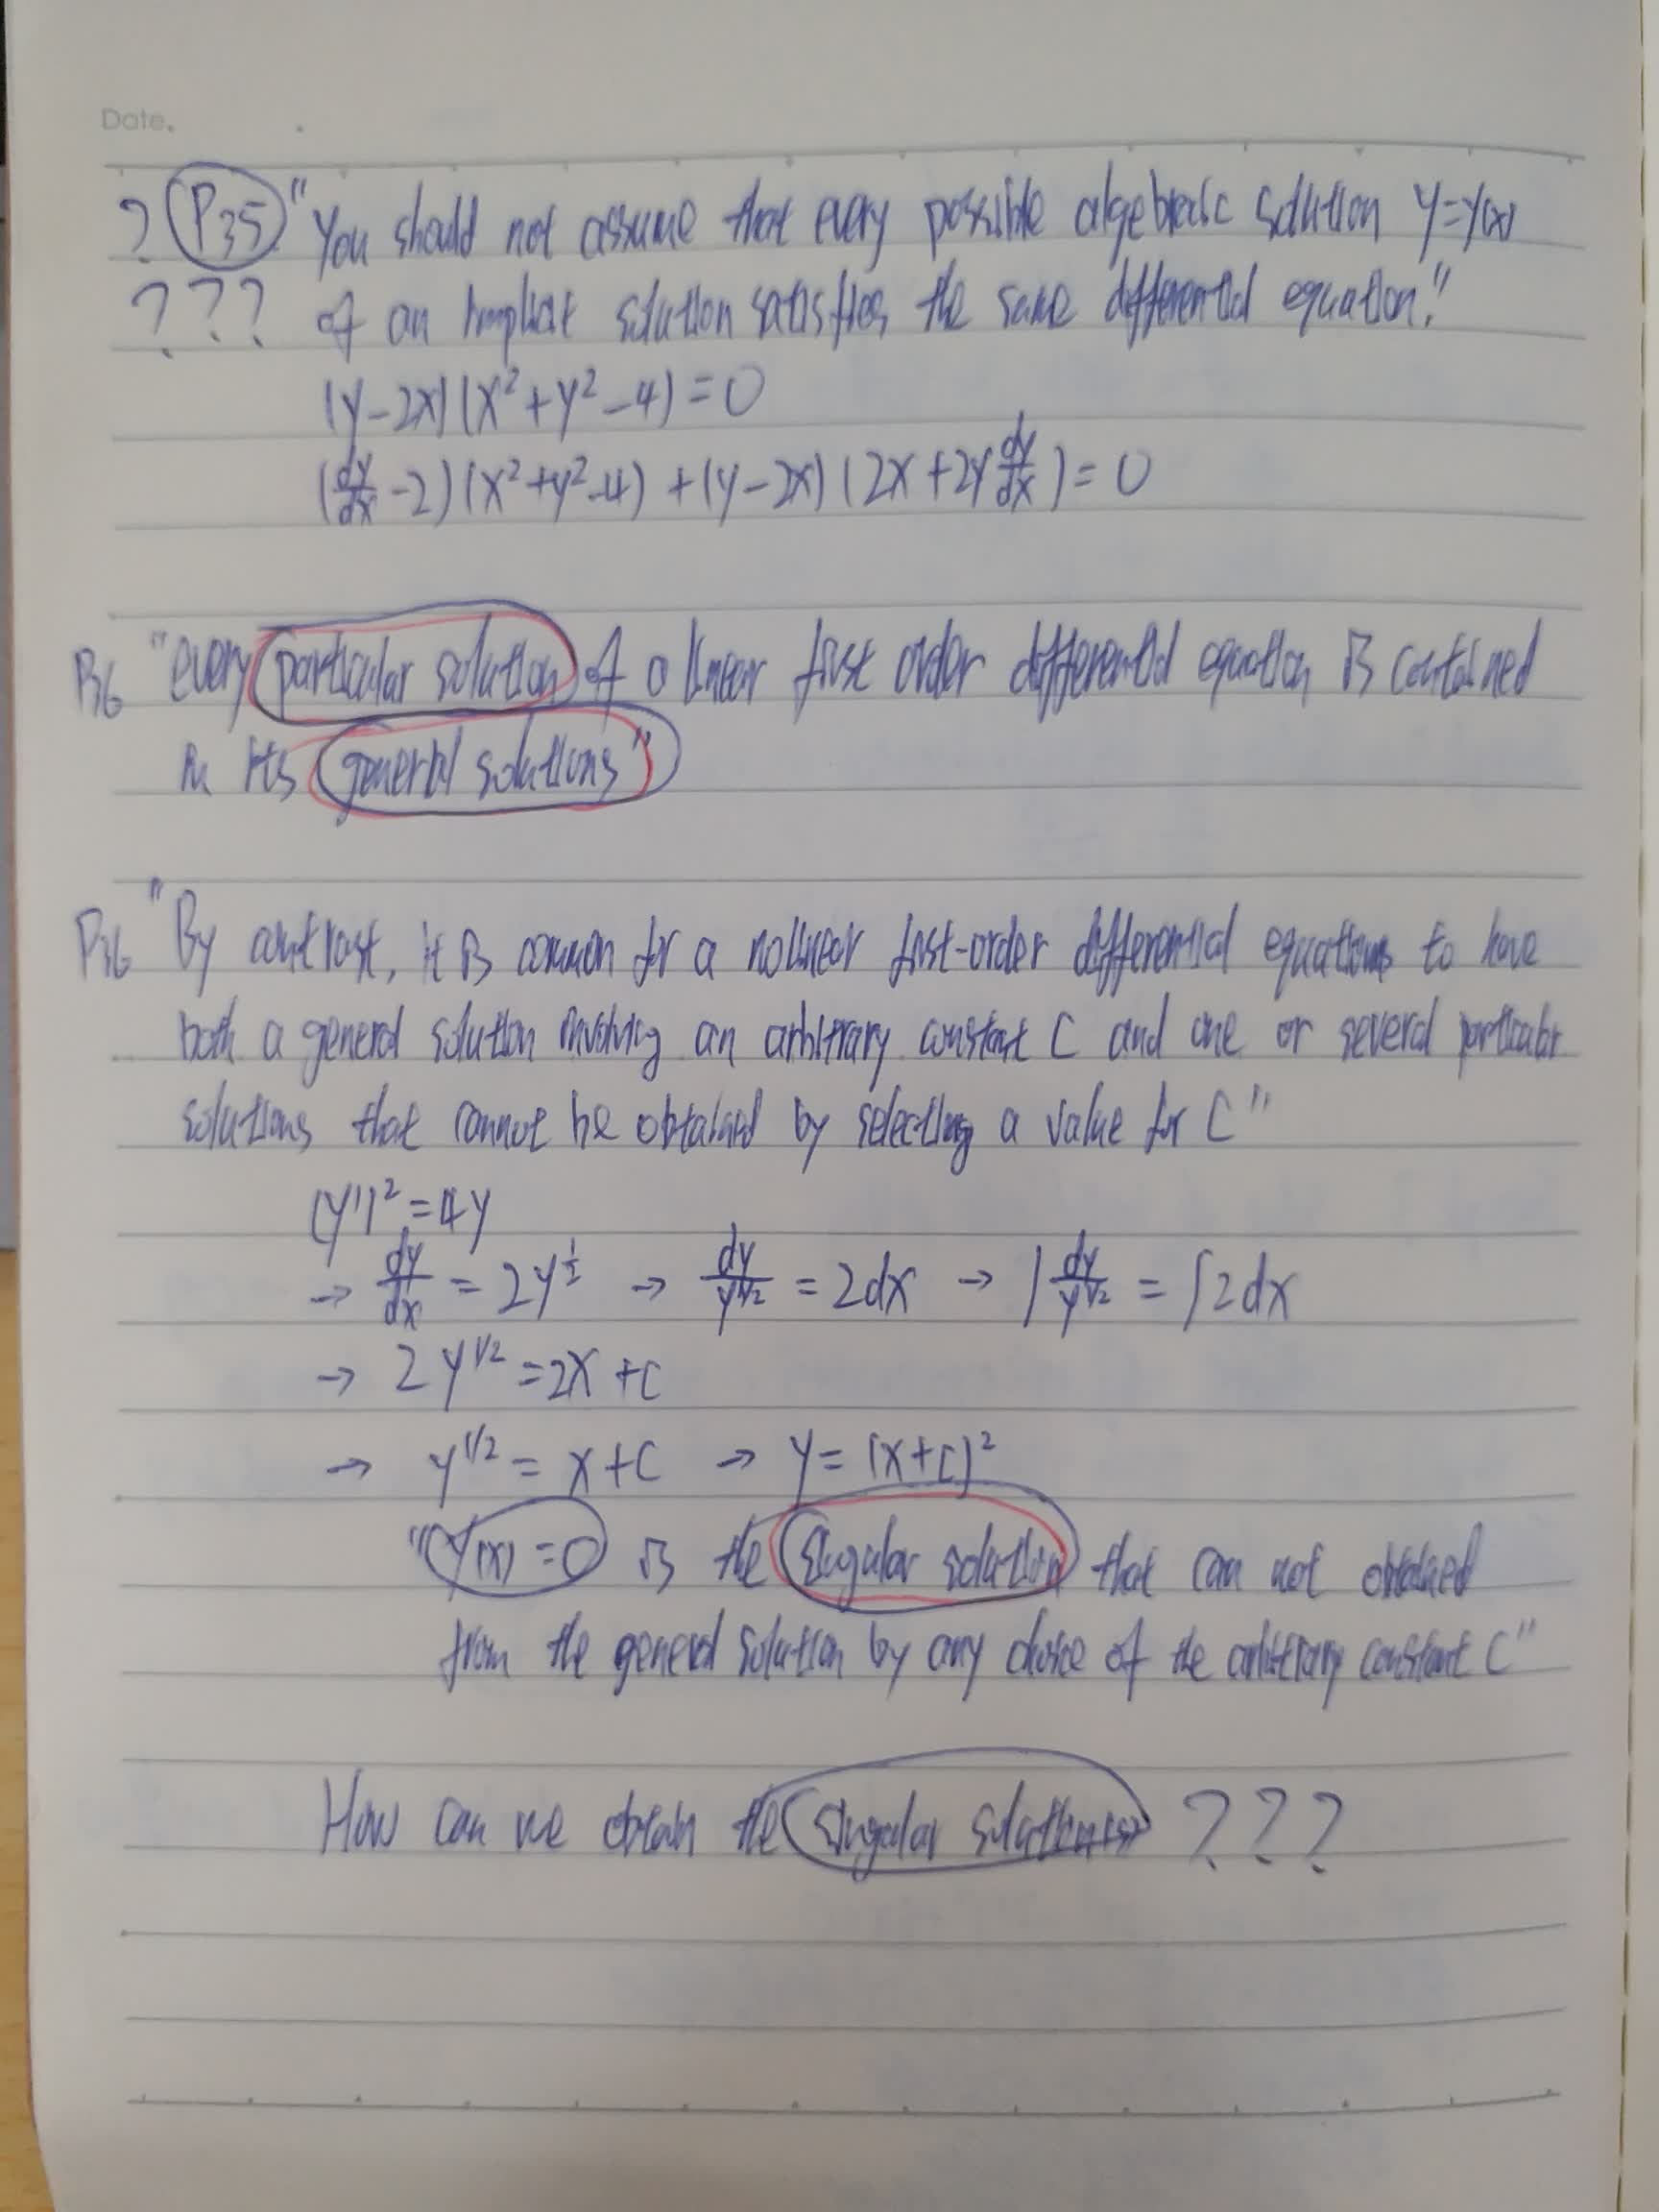 Date.
? P35 "You should not assume that every possible algebraic solution y=y(x)
??? of an implicit solution satisfies the same differential equation."
(y-2x)(x²+y²-4)=0
(dy/dx -2)(x²+y²-4)+(y-2x)(2x+2y dy/dx)=0
P36 "every particular solution of a linear first order differential equation is contained
in its general solutions"
P36 "By contrast, it is common for a nolinear first-order differential equations to have
both a general solution involving an arbitrary constant C and one or several particular
solutions that cannot be obtained by selecting a value for C"
(y')²=4y
→ dy/dx = 2y^1/2 → dy/y^1/2 = 2dx → ∫ dy/y^1/2 = ∫2dx
→ 2y^1/2 = 2x+C
→ y^1/2 = x+C → y=(x+C)²
"y(x)=0 is the singular solution that can not obtained
from the general solution by any choice of the arbitrary constant C"
How can we obtain the singular solution(s) ???